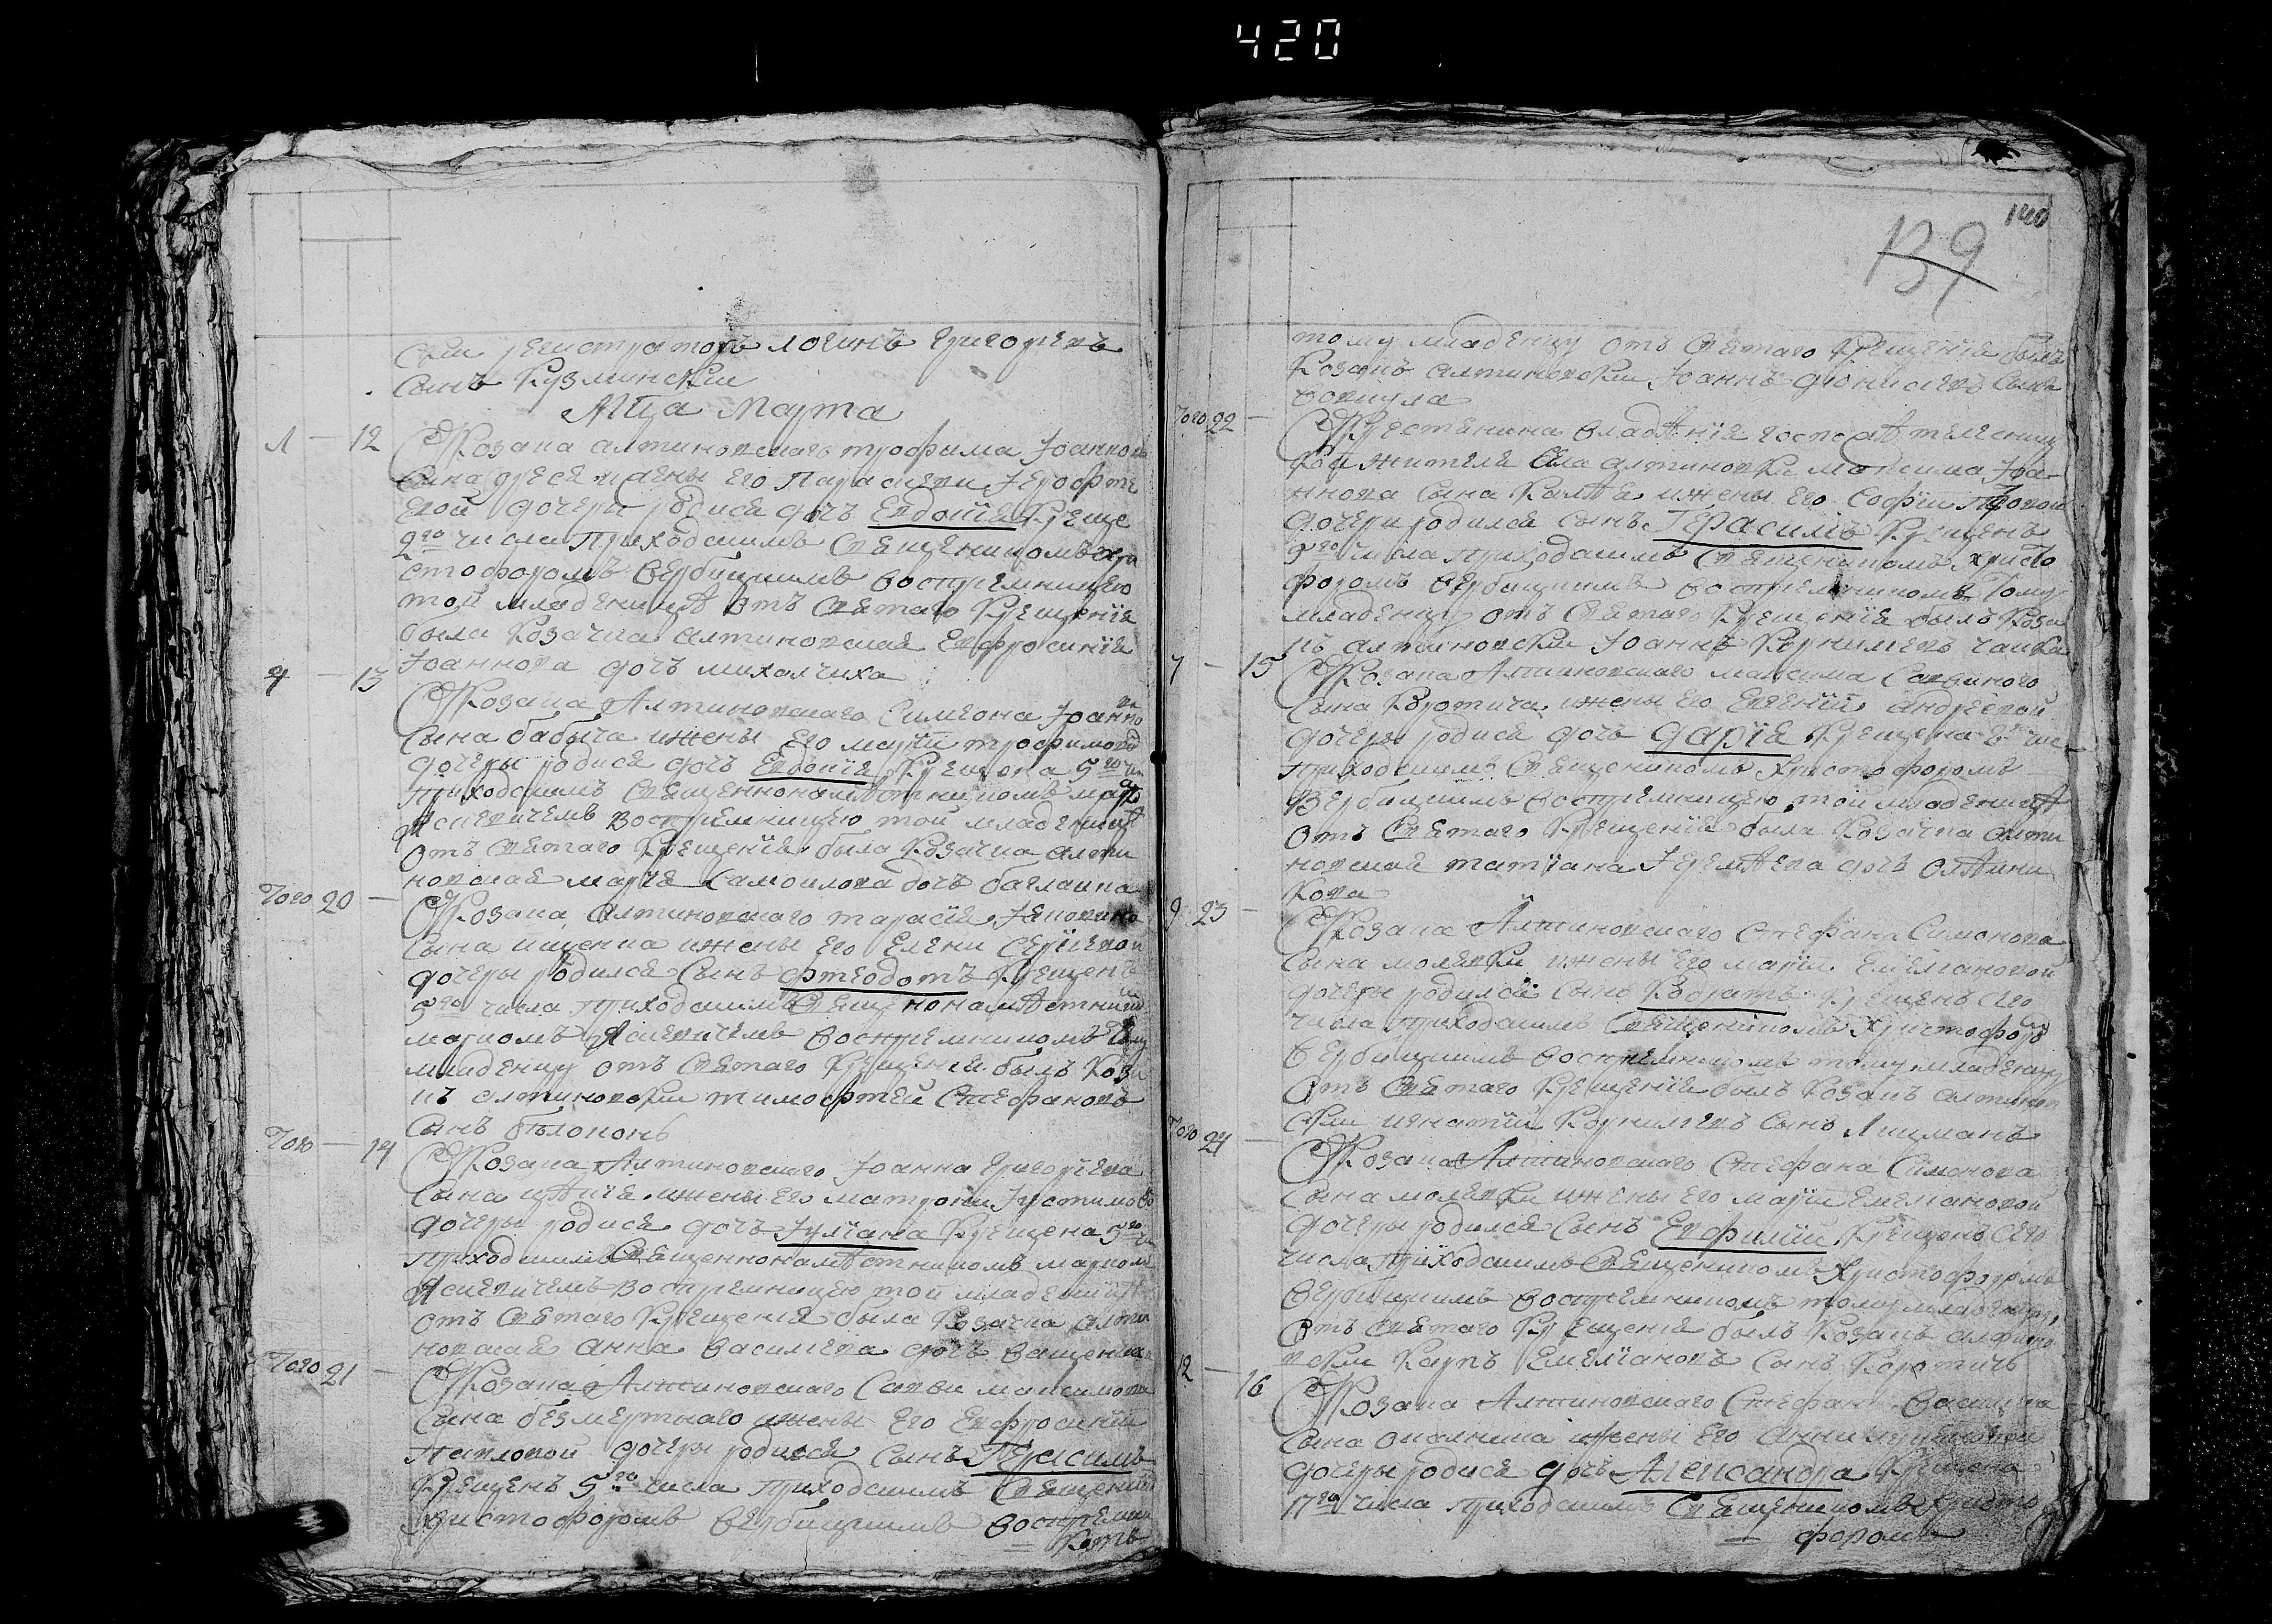 420
140
139
ски регистраторъ логинъ григориевъ
сынъ Кузминский
Мца марта
1 — 12 У Козака алтиновского трофима Іоаннова
сына жены его Параскеви
дочери родися дочь Евдокія Креще
2го числа Приходскимъ священникомъ хри
стофоромъ вербицкимъ восприемницею
той младеницѣ отъ святаго Крещенія
была Козачка алтиновская Евфросинія
Іоаннова дочь михалчиха
4 — 13 У Козака Алтиновского Симеона Іоанно
сына бабыча ижены его маріи трофимово
дочери родися дочь Евдокія Крещена 5го чи
Приходскимъ священнонамѣстникомъ марко
Ясиевичемъ восприемницею той младеницѣ
отъ святаго Крещенія была Козачка алти
новская марія Самоилова дочь
Того 20 — У Козака Алтиновского тарасія Іяковино
сына ищенка ижены его Елени Сергіевой
дочери родился сынъ Фтеодотъ Крещенъ
5го числа Приходскимъ священнонамѣстни
маркомъ Ясиевичемъ восприемникомъ тому
младенцу отъ святаго Крещенія былъ Коза
къ алтиновски тимофтей Стефановъ
сынъ бѣлоконь
Того — 14 У Козака Алтиновского Іоанна григоріева
сына ижены его матрони Іустимово
дочери родися дочь Іуліана Крещена 5го чи
Приходскимъ священнонамѣстникомъ марком
Ясиевичемъ восприемницею той младеницѣ
отъ святаго Крещенія была Козачка алти
новская анна василиева дочь ващенка
Того 21 — У Козака Алтиновского Савви максимова
сына безмертнаго ижены его Евфросиніи
Павловой дочери родися сынъ Герасимъ
Крещенъ 5го числа Приходскимъ священни
христофоромъ вербицкимъ восприемни
— комъ
тому младенцу отъ святаго Крещенія былъ
Козакъ алтиновски Іоаннъ дионисиевъ сынъ
вовкула
Того 22 — У Крестянина владѣнія
жителя села алтиновки максима Іоа
ннова сына ижены его Софіи
дочери родился сынъ Герасимъ Крещенъ
9го числа Приходскимъ священникомъ христо
форомъ вербицкимъ восприемникомъ тому
младенцу отъ святаго Крещенія былъ Коза
къ алтиновски Іоаннъ Корнилиевъ чайка
7 — 15 У Козака Алтиновского максима Саввиного
сына Коротича ижены его Евгеніи андреевой
дочери родися дочь дарія Крещена
Приходскимъ священникомъ Христофоромъ
Вербицкимъ восприемницею той младеницѣ
отъ святаго Крещенія была Козачка алти
новская татіана Іеремѣева дочь олѣйни
кова
9 23 — У Козака Алтиновского Стефана Симонова
сына молявки ижены его маріи Емелиановой
дочери родился сынъ Кодратъ Крещенъ сего
числа Приходскимъ священникомъ Христофоро
вербицкимъ восприемникомъ тому младенцу
отъ святаго Крещенія былъ Козакъ алтинов
ски игнатій Корнилиевъ сынъ Лицманъ
Того 24 — У Козака Алтиновского Стефана Симонова
сына молявки ижены его маріи Емелиановой
дочери родился сынъ Евфимій Крещенъ сего
числа Приходскимъ священникомъ Христофоромъ
вербицкимъ восприемникомъ тому младенцу
отъ святаго Крещенія былъ Козакъ алтино
вски Карпъ Емелиановъ сынъ Коротичъ
12 — 16 У Козака Алтиновского Стефана
сына ижены его анни
дочери родися дочь Александра Крещена
17го числа Приходскимъ священникомъ христо
— форомъ